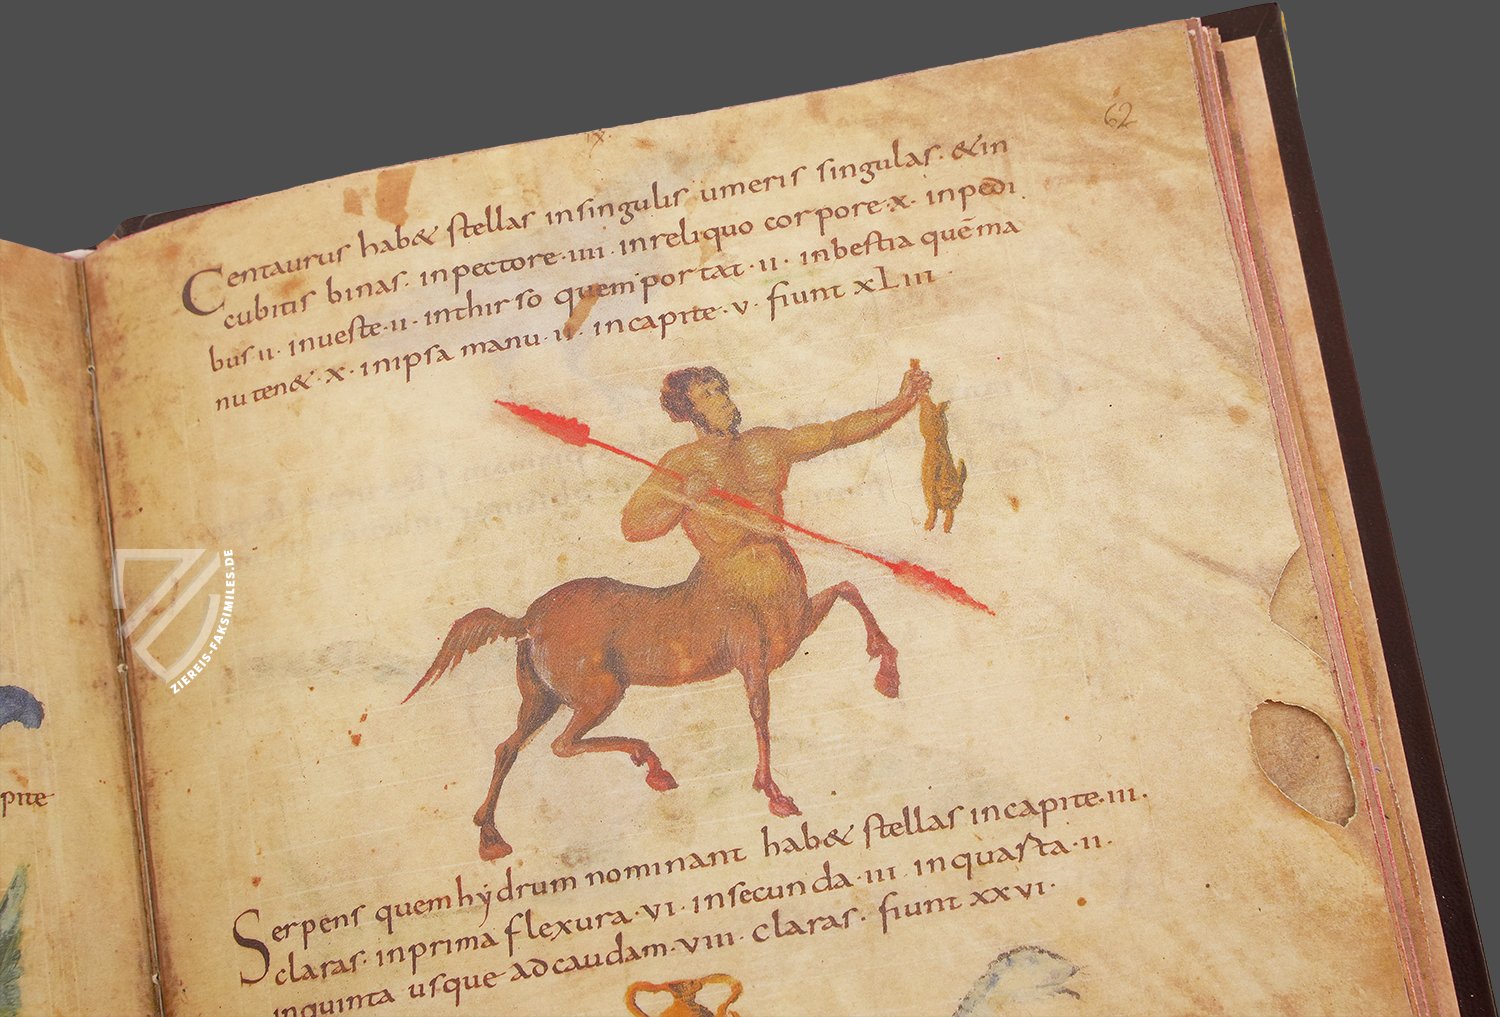 ix
62
Centaurus hab& stellas insingulis umeris singulas · &in
cubitis binas · inpectore · iiii · inreliquo corpore · x · inpedi
bus ii · inueste · ii · inthirso quem portat · ii · inbestia quēma
nu ten& · x · inipsa manu · ii · incapite · v · fiunt xLiii ·
pite
Serpens quemhẏdrum nominant hab& stellas incapite · iii ·
claras · inprima flexura · vi · insecunda · iii · inquarta · ii ·
inquinta usque adcaudam · viii · claras · fiunt xxvi ·
ZIEREIS-FAKSIMILES.DE